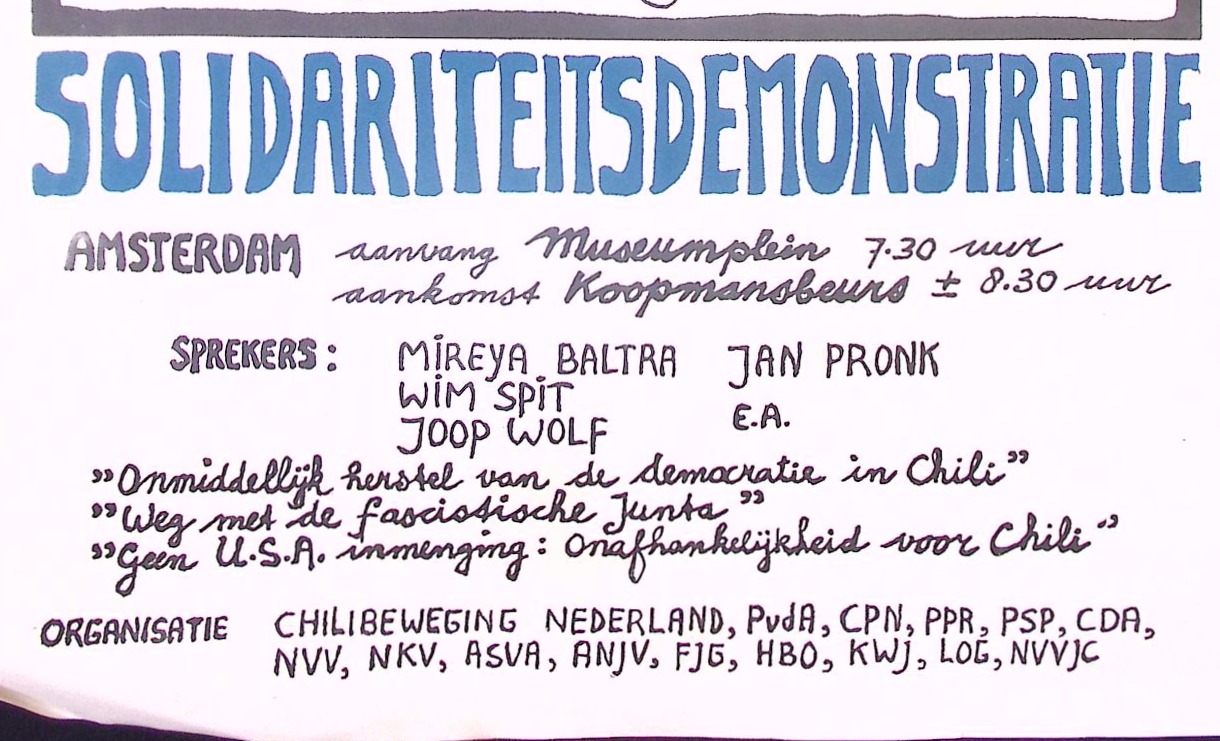 SOLIDARITEITSDEMONSTRATIE
AMSTERDAM aanvang Museumplein 7.30 uur
aankomst Koopmansbeurs ± 8.30 uur
SPREKERS: MIREYA BALTRA JAN PRONK
WIM SPIT E.A.
JOOP WOLF
"Onmiddellijk herstel van de democratie in Chili"
"Weg met de fascistische Junta"
"Geen U.S.A. inmenging: Onafhankelijkheid voor Chili"
ORGANISATIE CHILIBEWEGING NEDERLAND, PvdA, CPN, PPR, PSP, CDA,
NVV, NKV, ASVA, ANJV, FJG, HBO, KWJ, LOG, NVVJC